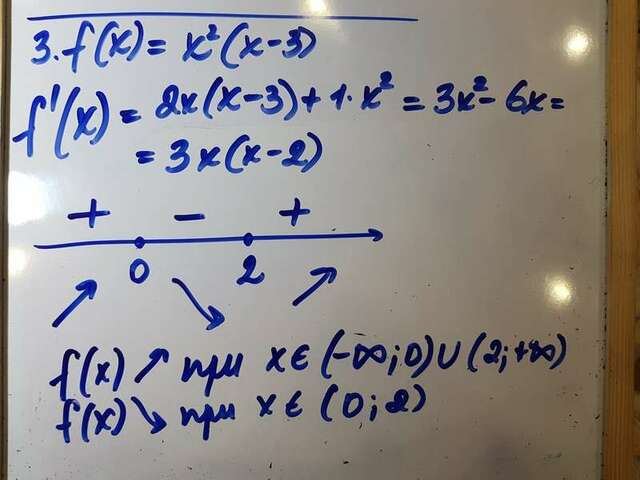 3. f(x) = x²(x-3)
f'(x) = 2x(x-3) + 1·x² = 3x² - 6x =
= 3x(x-2)
+ - +
0 2
f(x) ↗ при x∈(-∞;0)∪(2;+∞)
f(x) ↘ при x∈(0;2)